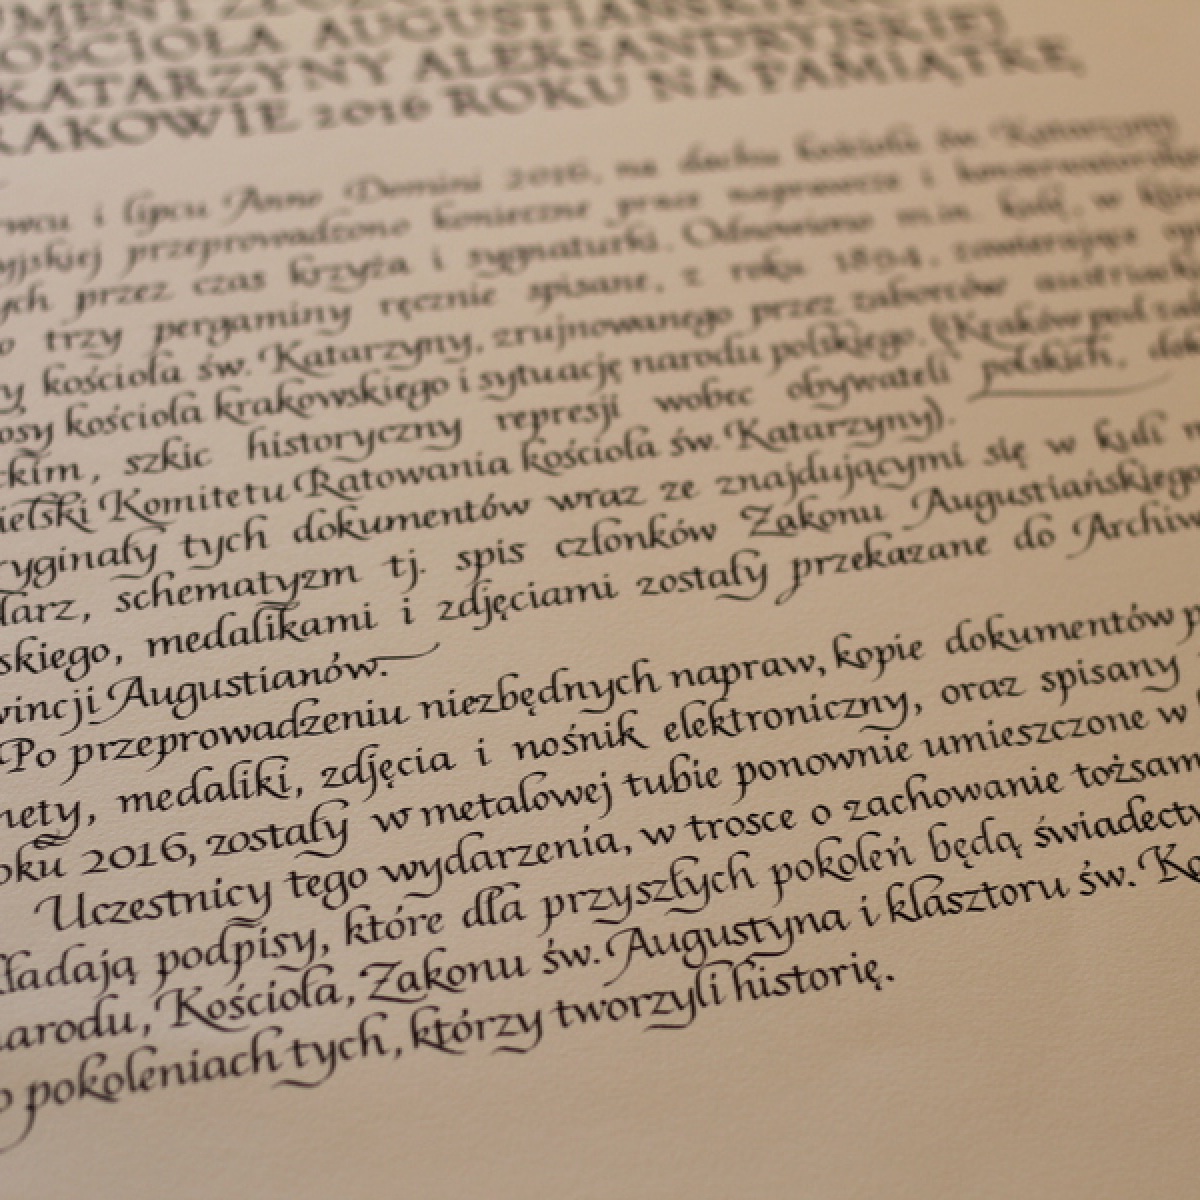 UMENT ZŁOŻ
OŚCIOŁA AUGUSTIAŃSKIEGO
KATARZYNY ALEKSANDRYJSKIEJ
RAKOWIE 2016 ROKU NA PAMIĄTKĘ
rwcu i lipcu Anno Domini 2016, na dachu kościoła św. Katarzyny
yjskiej przeprowadzono konieczne prace naprawcze i konserwatorskie
ych przez czas krzyża i sygnaturki. Odnowiono m.in. kulę, w której
o trzy pergaminy ręcznie spisane, z roku 1894, zawierające opis
y kościoła św. Katarzyny, zrujnowanego przez zaborców austriackich
osy kościoła krakowskiego i sytuację narodu polskiego. (Kraków pod zab
ckim, szkic historyczny represji wobec obywateli polskich, dok
ielski Komitetu Ratowania kościoła św. Katarzyny).
ryginały tych dokumentów wraz ze znajdującymi się w kuli m
darz, schematyzm tj. spis członków Zakonu Augustiańskiego
skiego, medalikami i zdjęciami zostały przekazane do Archiw
wincji Augustianów.
Po przeprowadzeniu niezbędnych napraw, kopie dokumentów p
nety, medaliki, zdjęcia i nośnik elektroniczny, oraz spisany
oku 2016, zostały w metalowej tubie ponownie umieszczone w
Uczestnicy tego wydarzenia, w trosce o zachowanie tożsam
kładają podpisy, które dla przyszłych pokoleń będą świadectw
narodu, Kościoła, Zakonu św. Augustyna i klasztoru św. Ka
o pokoleniach tych, którzy tworzyli historię.